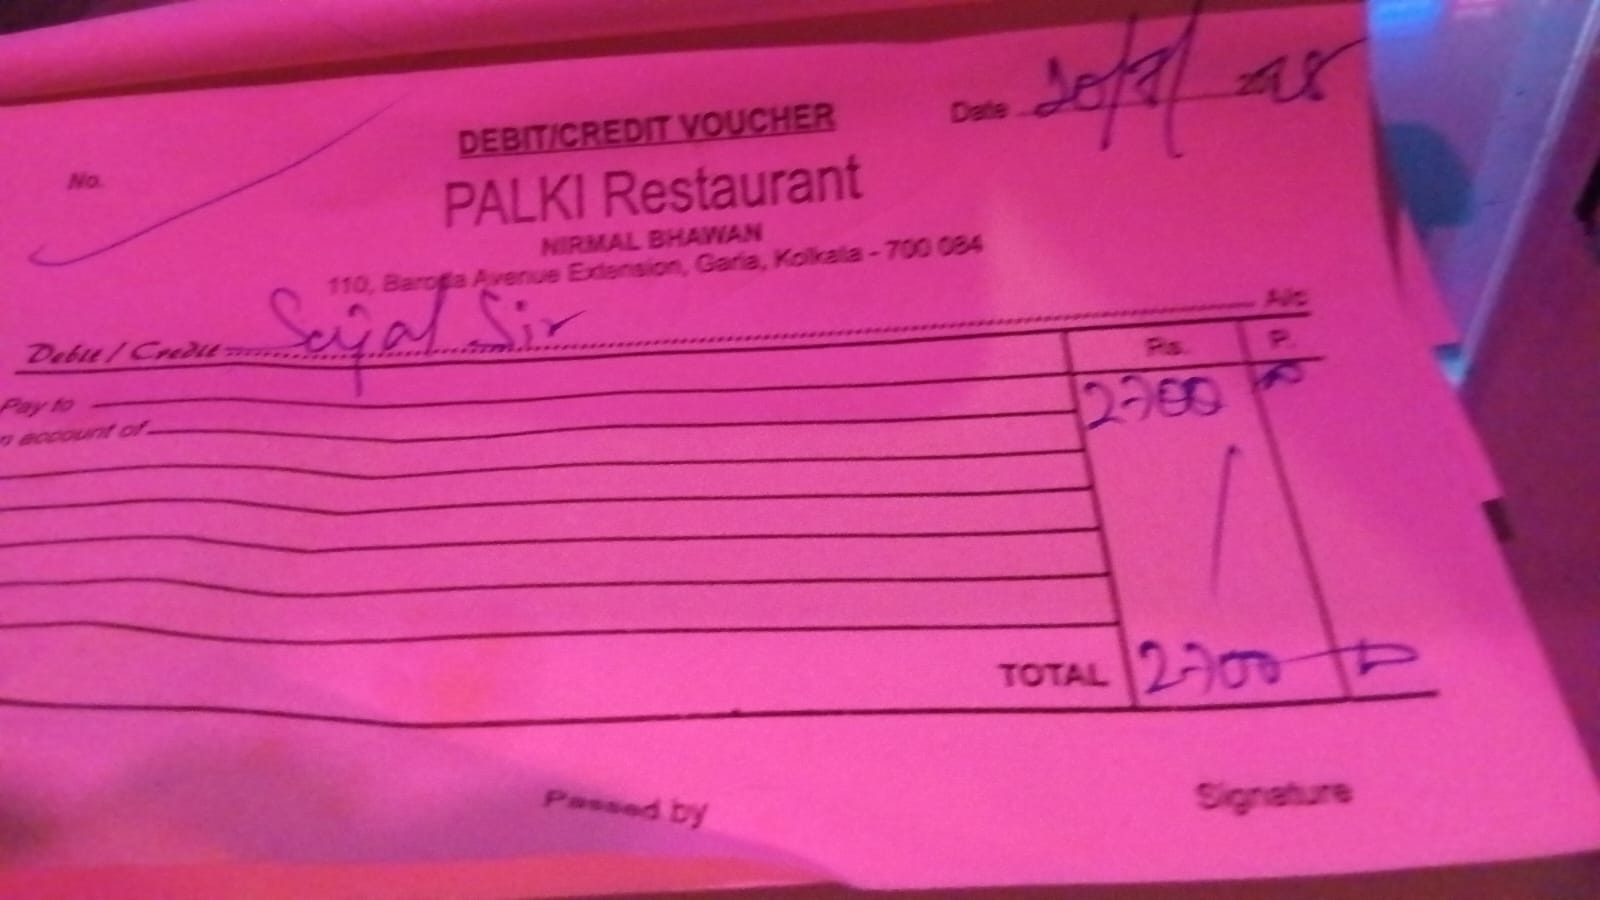 DEBIT/CREDIT VOUCHER
Date 20/8/
No.
PALKI Restaurant
NIRMAL BHAWAN
110, Baroda Avenue Extension, Garia, Kolkata - 700 084
Debit / Credit Sajal Sir A/c
Rs. P.
Pay to 2700 00
n account of
TOTAL 2700
Passed by Signature